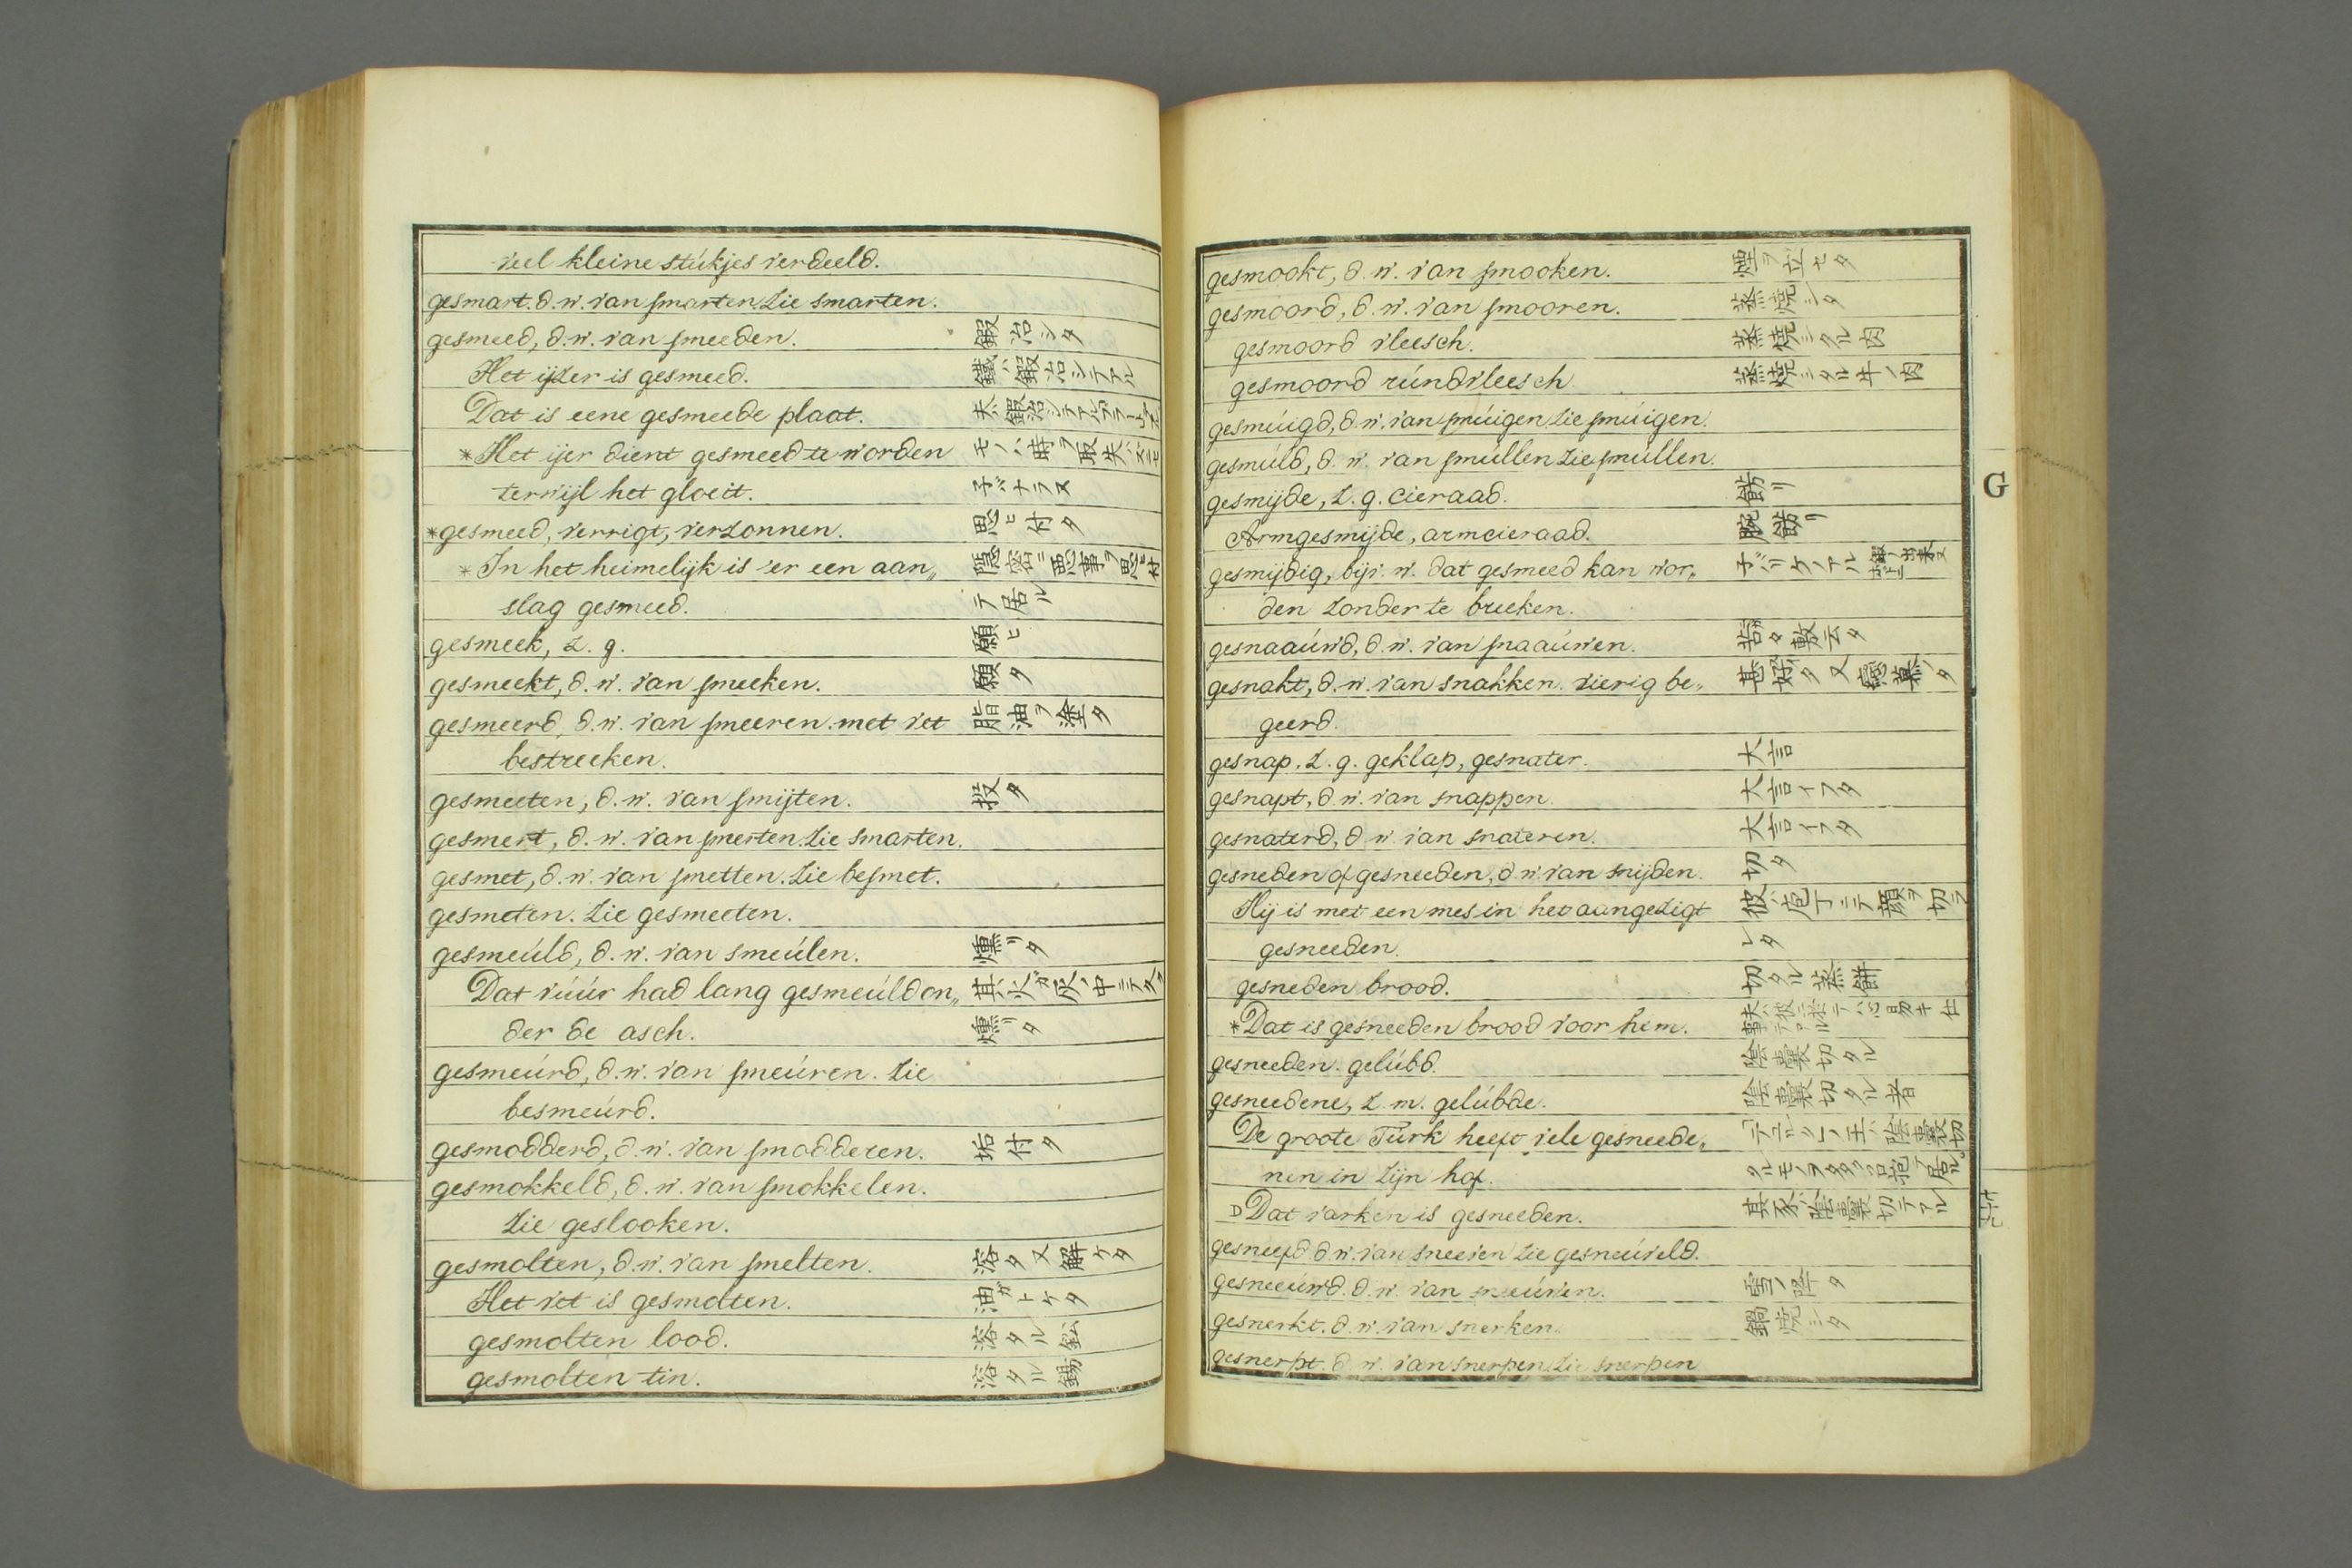 veel kleine stúkjes verdeeld.
gesmart. d. w. van smarten. Zie smarten.
gesmeed, d. w. van smeeden. 鍛冶シタ
Het ijzer is gesmeed. 鐵ハ鍛冶シテアル
Dat is eene gesmeede plaat.
*Het ijzer dient gesmeed te worden モノハ時ヲ取失ハズニセ
terwijl het gloeit. 子バナラヌ
*gesmeed, verrigt, verzonnen. 思ヒ付タ
*In het heimelijk is 'er een aan„ 隱密ニ悪事ヲ思ヒ付
slag gesmeed. テ居ル
gesmeek, z. g. 願ヒ
gesmeekt, d. w. van smeeken. 願タ
gesmeerd, d. w. van smeeren. met vet 脂油ヲ塗タ
bestreeken.
gesmeeten, d. w. van smijten. 投タ
gesmert, d. w. van smerten. Zie smarten.
gesmet, d. w. van smetten. Zie besmet.
gesmeten. Zie gesmeeten.
gesmeúld, d. w. van smeúlen. 燻リタ
Dat vúúr had lang gesmeúld on„ 其火ガ灰ノ中ニテ久ク
der de asch. 燻リタ
gesmeúrd, d. w. van smeúren. Zie
besmeúrd.
gesmodderd, d. w. van smodderen. 垢付タ
gesmokkeld, d. w. van smokkelen.
Zie geslooken.
gesmolten, d. w. van smelten. 溶タ又解ケタ
Het vet is gesmolten. 油ガトケタ
gesmolten lood. 溶タル鉛
gesmolten tin. 溶タル錫
gesmookt, d. w. van smooken. 煙ヲ立セタ
gesmoord, d. w. van smooren. 蒸焼シタ
gesmoord vleesch. 蒸焼シタル肉
gesmoord rúndvleesch 蒸焼シタル牛ノ肉
gesmúigd, d. w. van smúigen Zie smúigen.
gesmúld, d. w. van smúllen Zie smúllen.
gesmijde, z. g. cieraad. 飾リ
Armgesmijde, armcieraad. 腕飾リ
gesmijdig, bijv. w. dat gesmeed kan wor„ 子バリケノアル
den zonder te breeken.
gesnaaúwd, d. w. van snaaúwen.
gesnakt, d. w. van snakken. vierig be„ 甚好イタ又戀慕ノタ
geerd.
gesnap, z. g. geklap, gesnater. 大言
gesnapt, d. w. van snappen. 大言イフタ
gesnaterd, d. w. van snateren. 大言イフタ
gesneden of gesneeden, d. w. van snijden. 切タ
Hij is met een mes in het aangezigt 彼ハ庖丁ニテ顔ヲ切ラ
gesneeden. レタ
gesneden brood. 切タル蒸餅
*Dat is gesneeden brood voor hem. 夫ハ彼ニ於テハ心易キ仕事テアル
gesneeden. gelúbd. 陰嚢切タル
gesneedene, z. m. gelúbde. 陰嚢切タル者
De groote Túrk heeft vele gesneede„
nen in zijn hof.
D Dat varken is gesneeden. 其豕ハ陰嚢切テアル
gesneefd d. w. van sneeven Zie gesneúveld.
gesneeúwd. d. w. van sneeúwen. 雪ノ降タ
gesnerkt. d. w. van snerken. 鍋焼シタ
gesnerpt. d. w. van snerpen. Zie snerpen
G